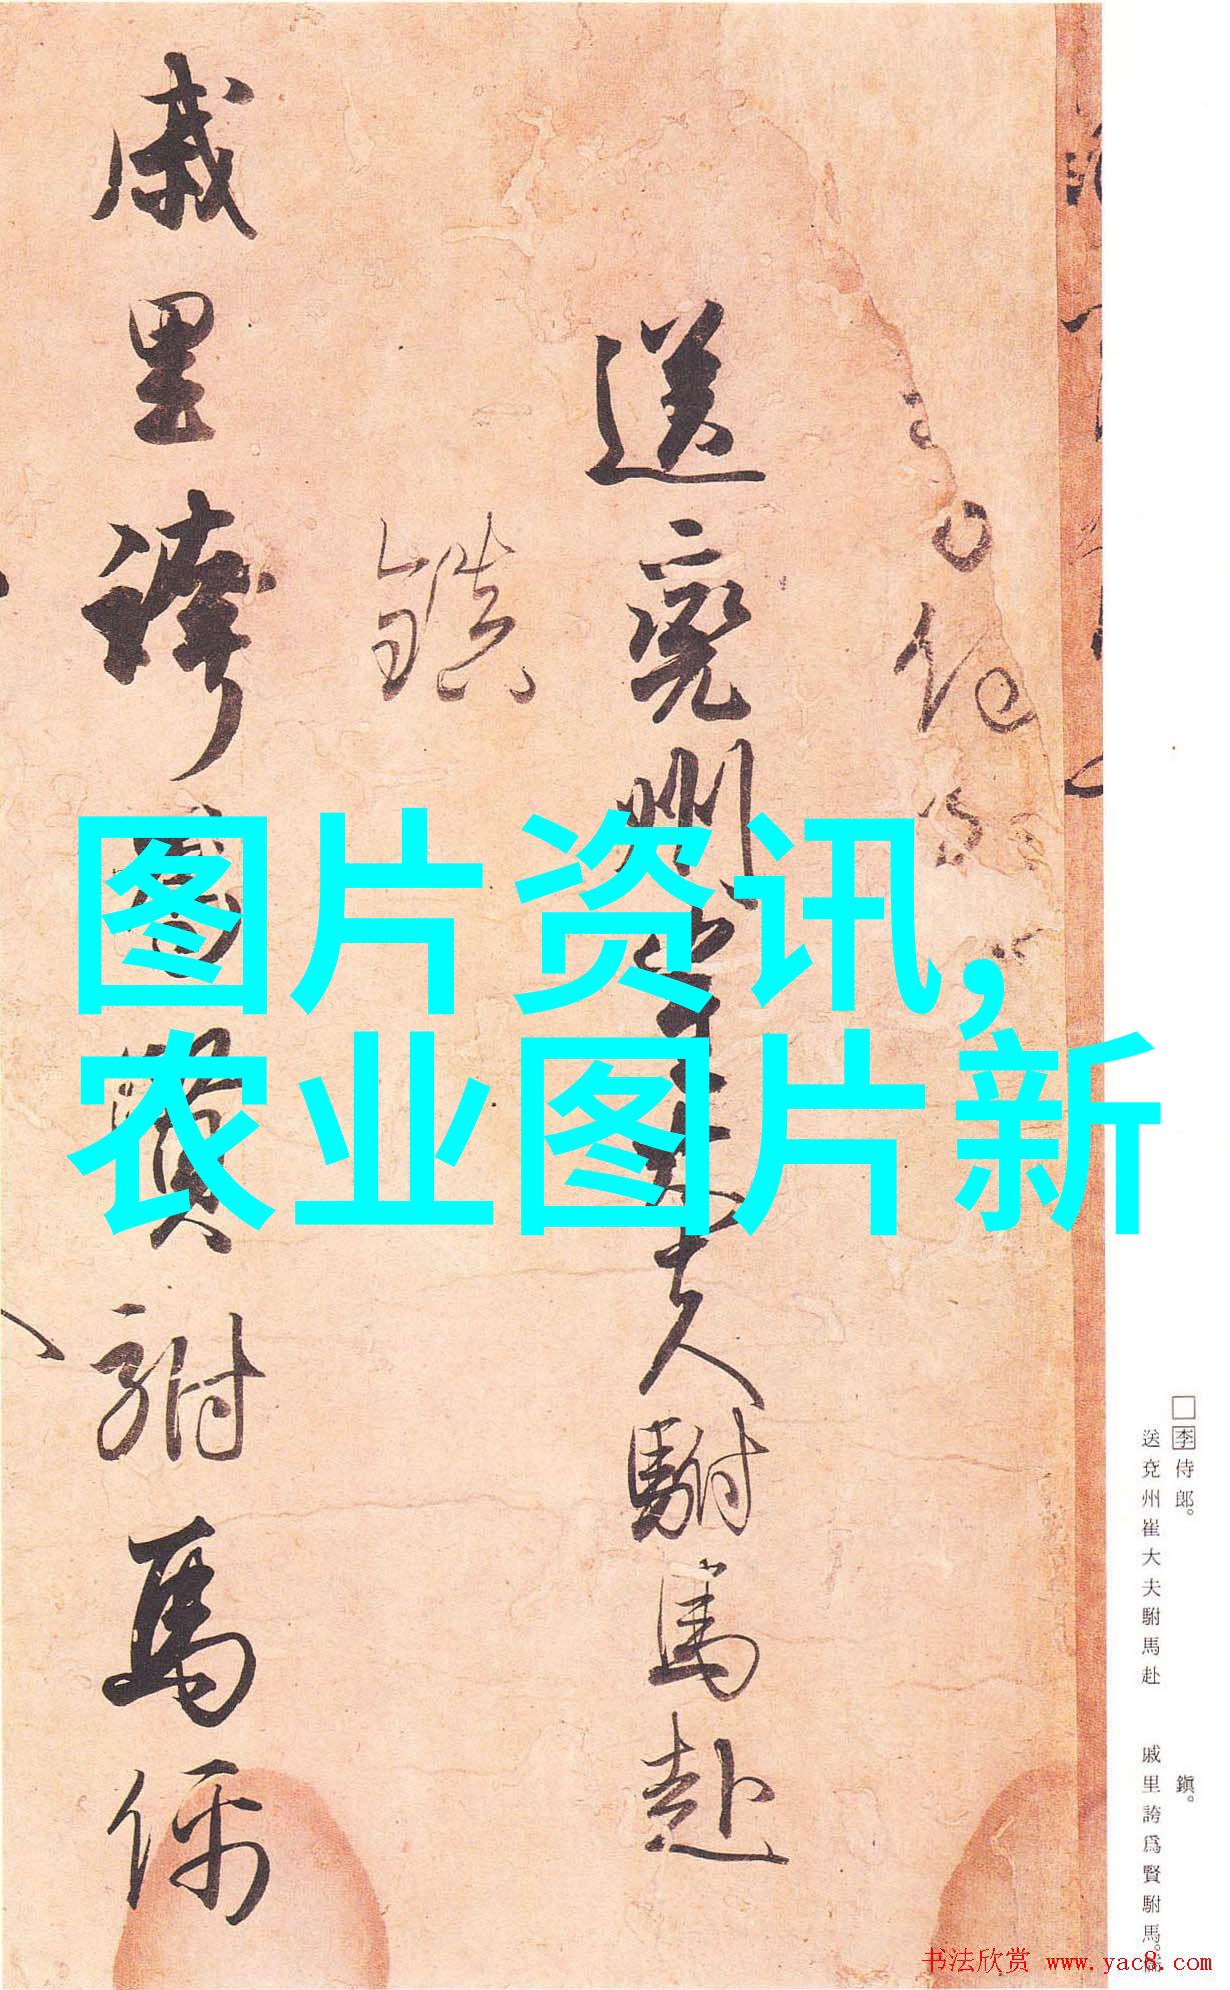 李侍郎。
送兗州崔大夫駙馬赴
鎮。
戚里誇為賢駙馬儒
图片资讯,
农业图片新
□李侍郎。
送兗州崔大夫駙馬赴
鎮。
戚里誇爲賢駙馬。儒
书法欣赏 www.yac8.com